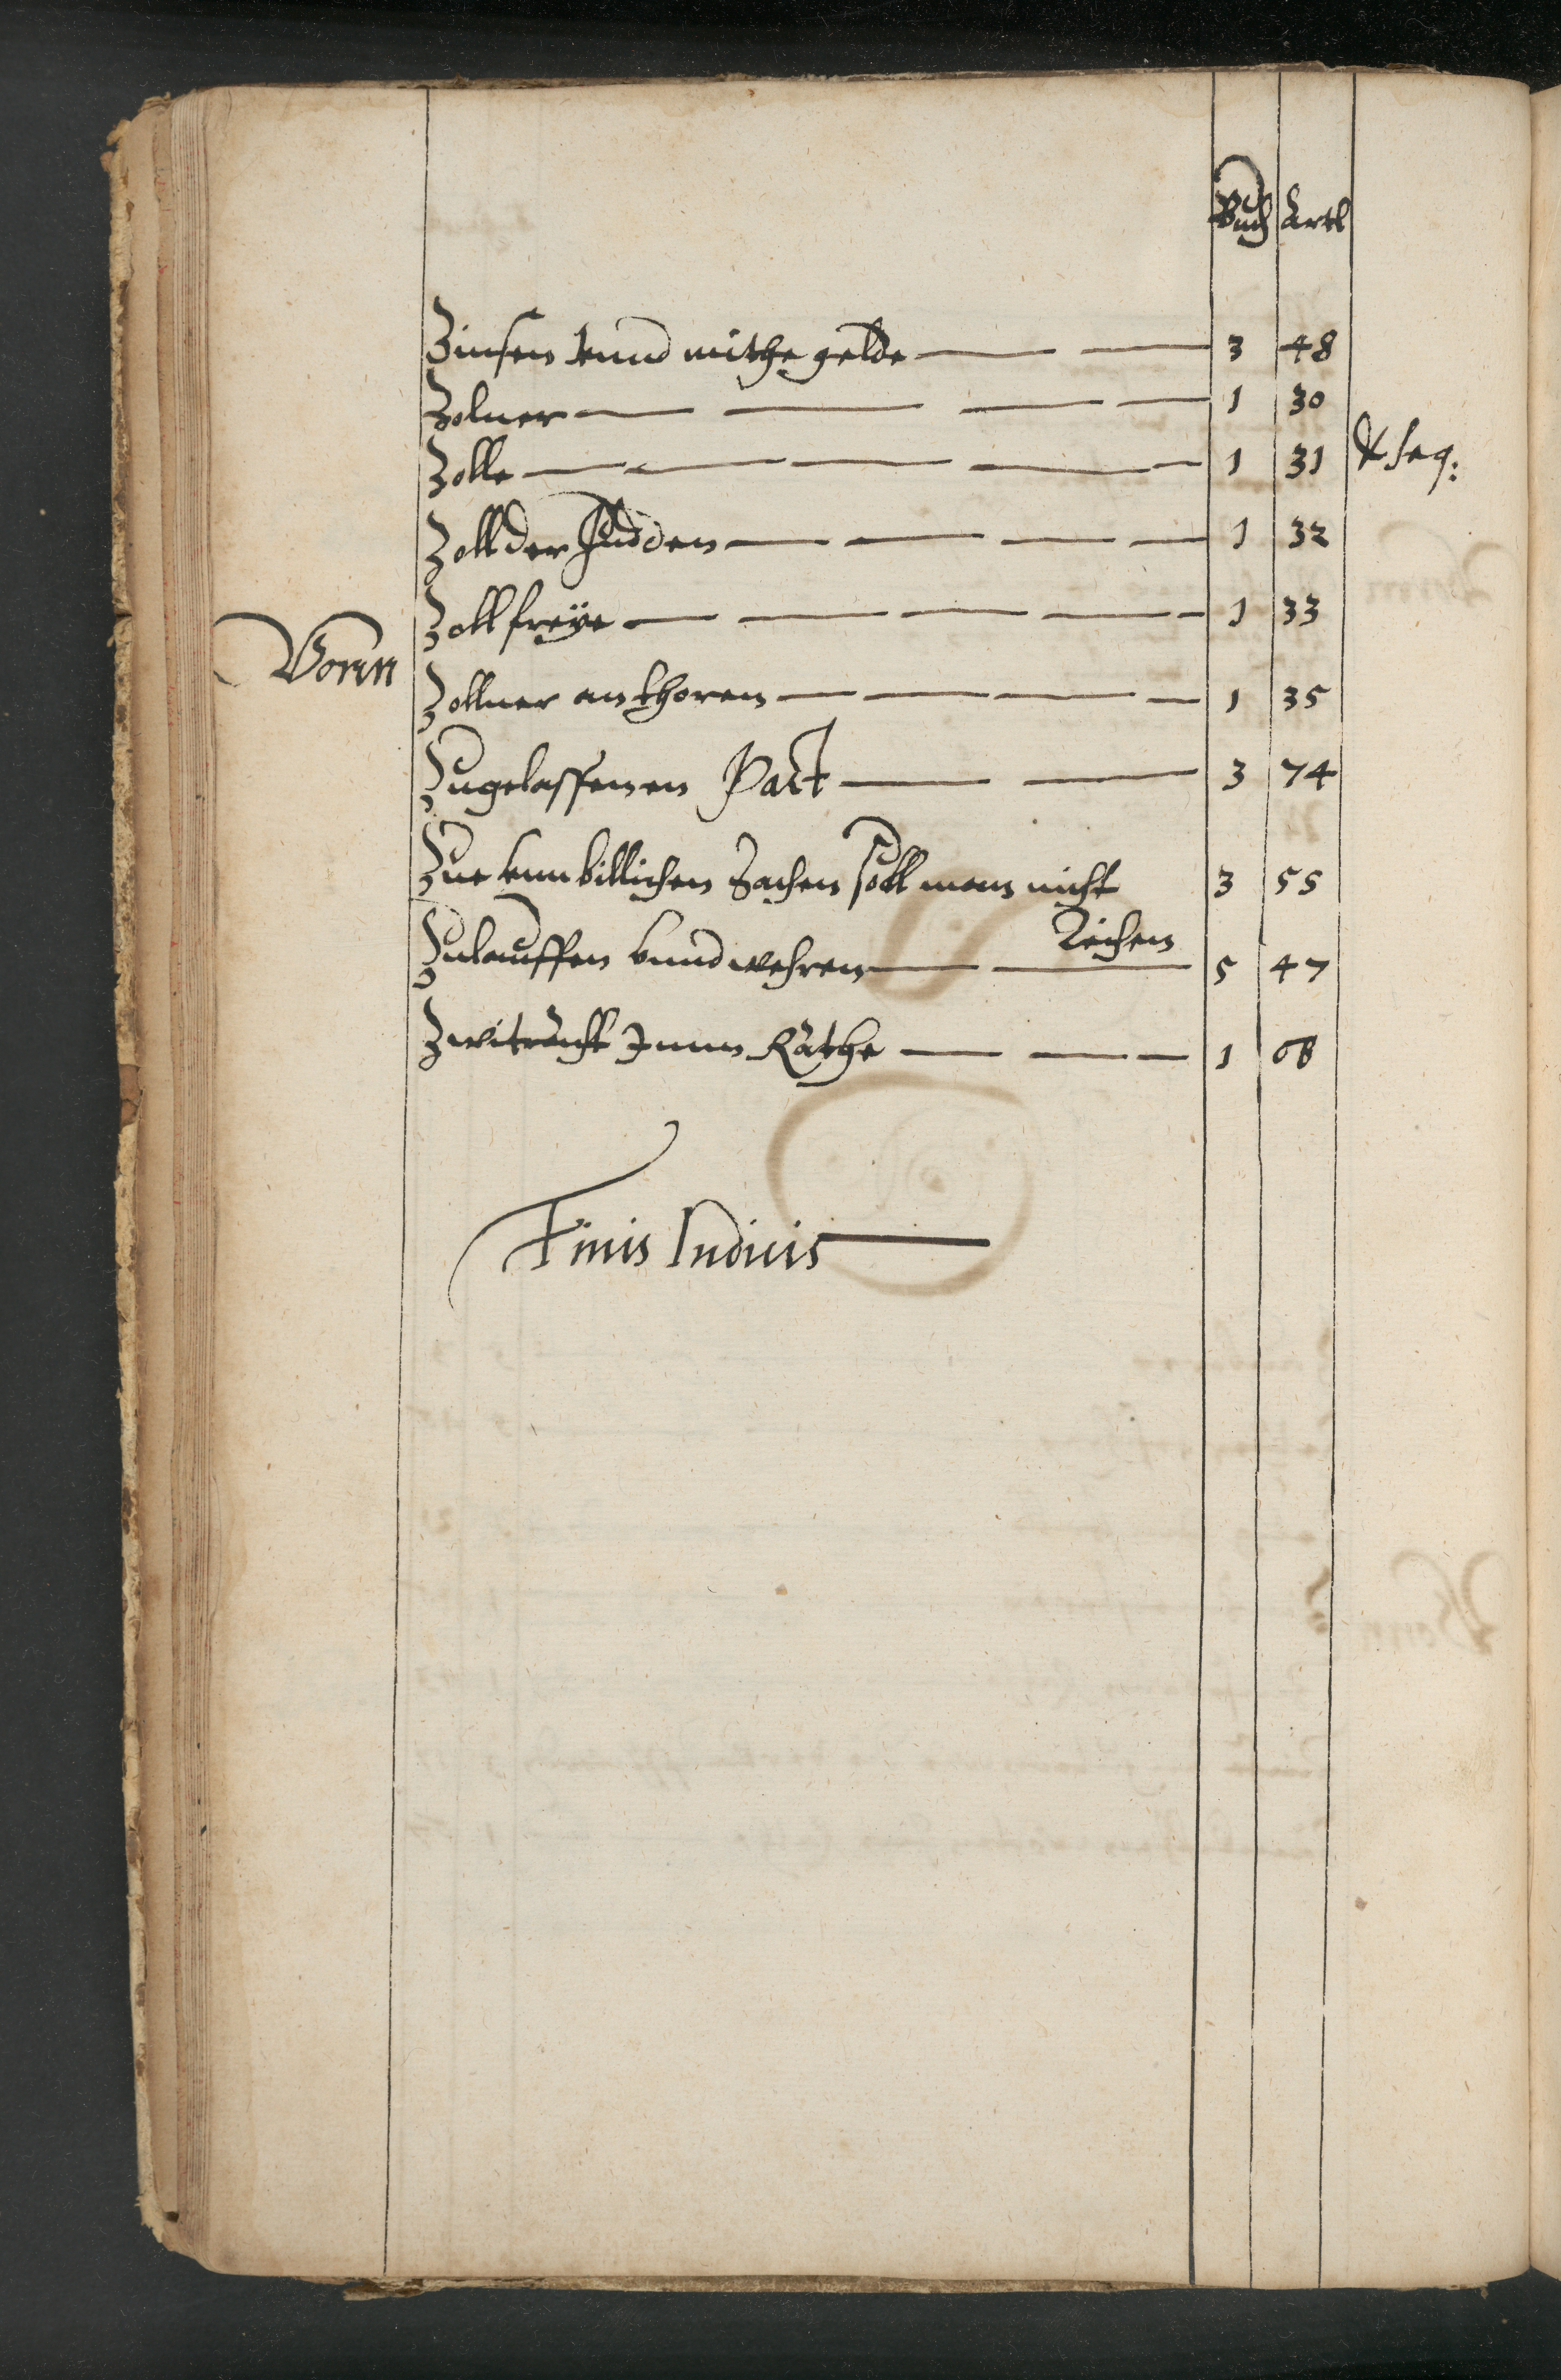 Buch Artl
Zinsen vnnd mithe gelde 3 48
Zolner 1 30
Zolle 1 31 & seq:
Zoll der Judden 1 32
Zoll freÿe 1 33
Vonn
Zollner an thoren 1 35
Zugelassenen Pact 3 74
Zue vnnbillichen Sachen soll man nicht 3 55
Zeichen
Zulauffen vnnd wehren 5 47
Zwitracht Jnnn Rathe 1 68
Finis Indicis